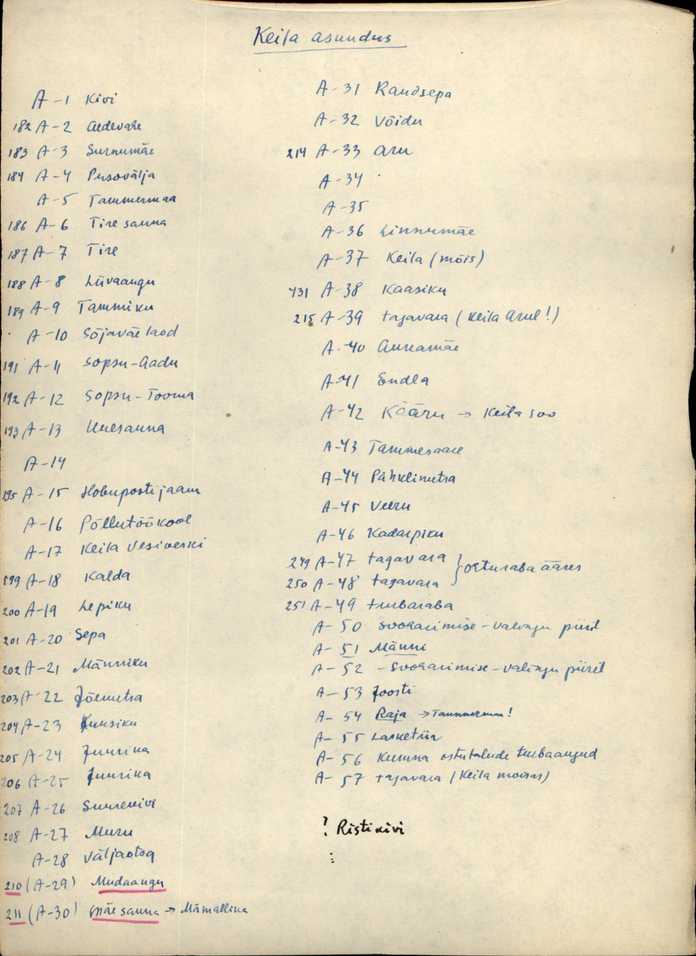 Keila asundus
A-1 Kivi
182 A-2 Aedevahe
183 A-3 Surnumäe
184 A-4 Pusovälja
A-5 Tammermaa
186 A-6 Tiresauna
187 A-7 Tire
188 A-8 Liivaaugu
189 A-9 Tammiku
A-10 Sõjaväelaod
191 A-11 Sopsu-Aadu
192 A-12 Sopsu-Tooma
193 A-13 Uuesauna
A-14
195 A-15 Hobupostijaam
A-16 Põllutöökool
A-17 Keila Vesiveski
199 A-18 Kalda
200 A-19 Lepiku
201 A-20 Sepa
202 A-21 Männiku
203 A-22 Jõemetsa
204 A-23 Kuusiku
205 A-24 Juurika
206 A-25 Juurika
207 A-26 Suurekivi
208 A-27 Muru
A-28 Väljaotsa
210 (A-29) Mudaaugu
211 (A-30) Mäesauna → Mämallika
A-31 Raudsepa
A-32 Võidu
214 A-33 Aru
A-34
A-35
A-36 Linnumäe
A-37 Keila (mõis)
431 A-38 Kaasiku
215 A-39 tagavara (Keila Arul!)
A-40 Annamäe
A-41 Endla
A-42 Kääru → Keila soo
A-43 Tammesaare
A-44 Pähklimetsa
A-45 Veeru
A-46 Kadarpiku
249 A-47 tagavara
250 A-48 tagavara } Ohturaba ääres
251 A-49 turbaraba
A-50 Sooharimise-Valingu piiril
A-51 Männi
A-52 -Sooharimise-Valingu piiril
A-53 Joosti
A-54 Raja → Tammermaa!
A-55 Lasketiir
A-56 Kumna ostutalude turbaaugud
A-57 tagavara (Keila mõisas)
? Ristikivi
: